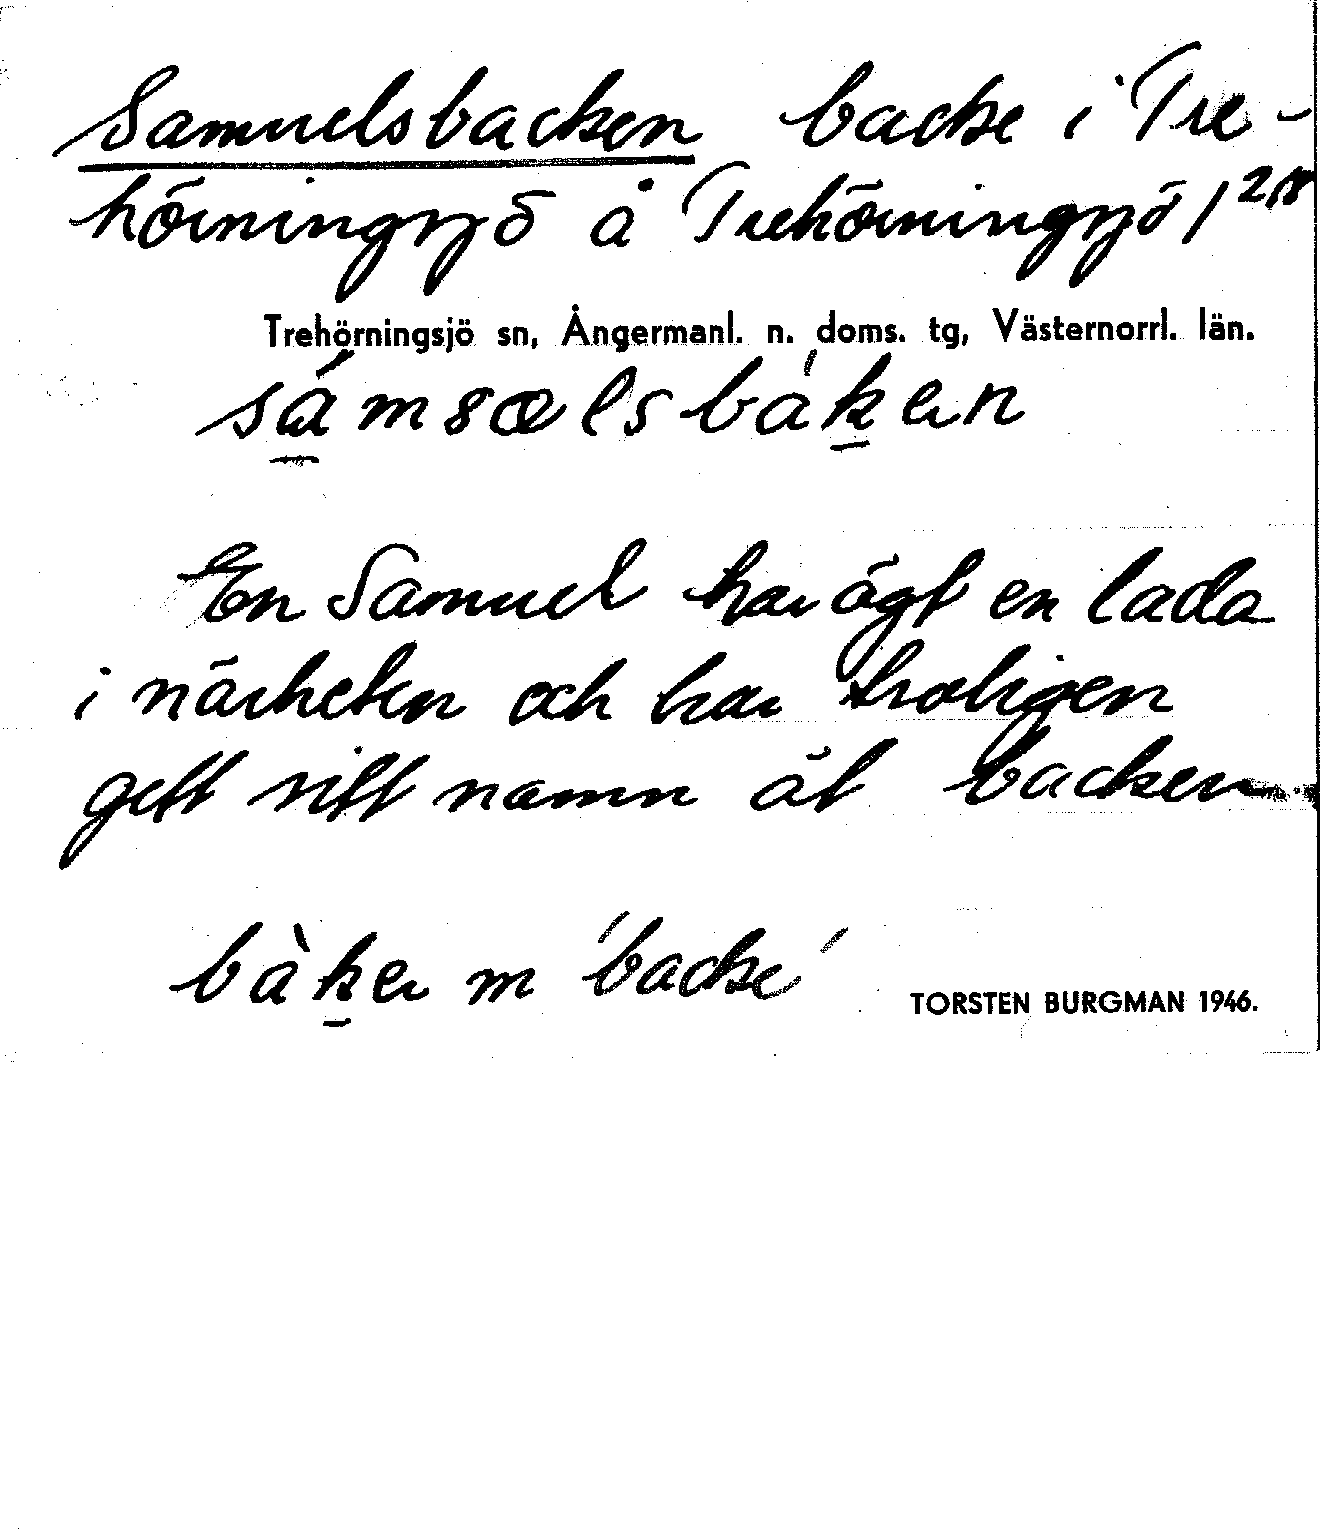 Samuelsbacken backe i Tre-
hörningsjö å Trehörningsjö 1 2,18
Trehörningsjö sn, Ångermanl. n. doms. tg, Västernorrl. län.
En Samuel har ägt en lada
i närheten och har troligen
gett sitt namn åt backen
bàkes m 'backe'
TORSTEN BURGMAN 1946.